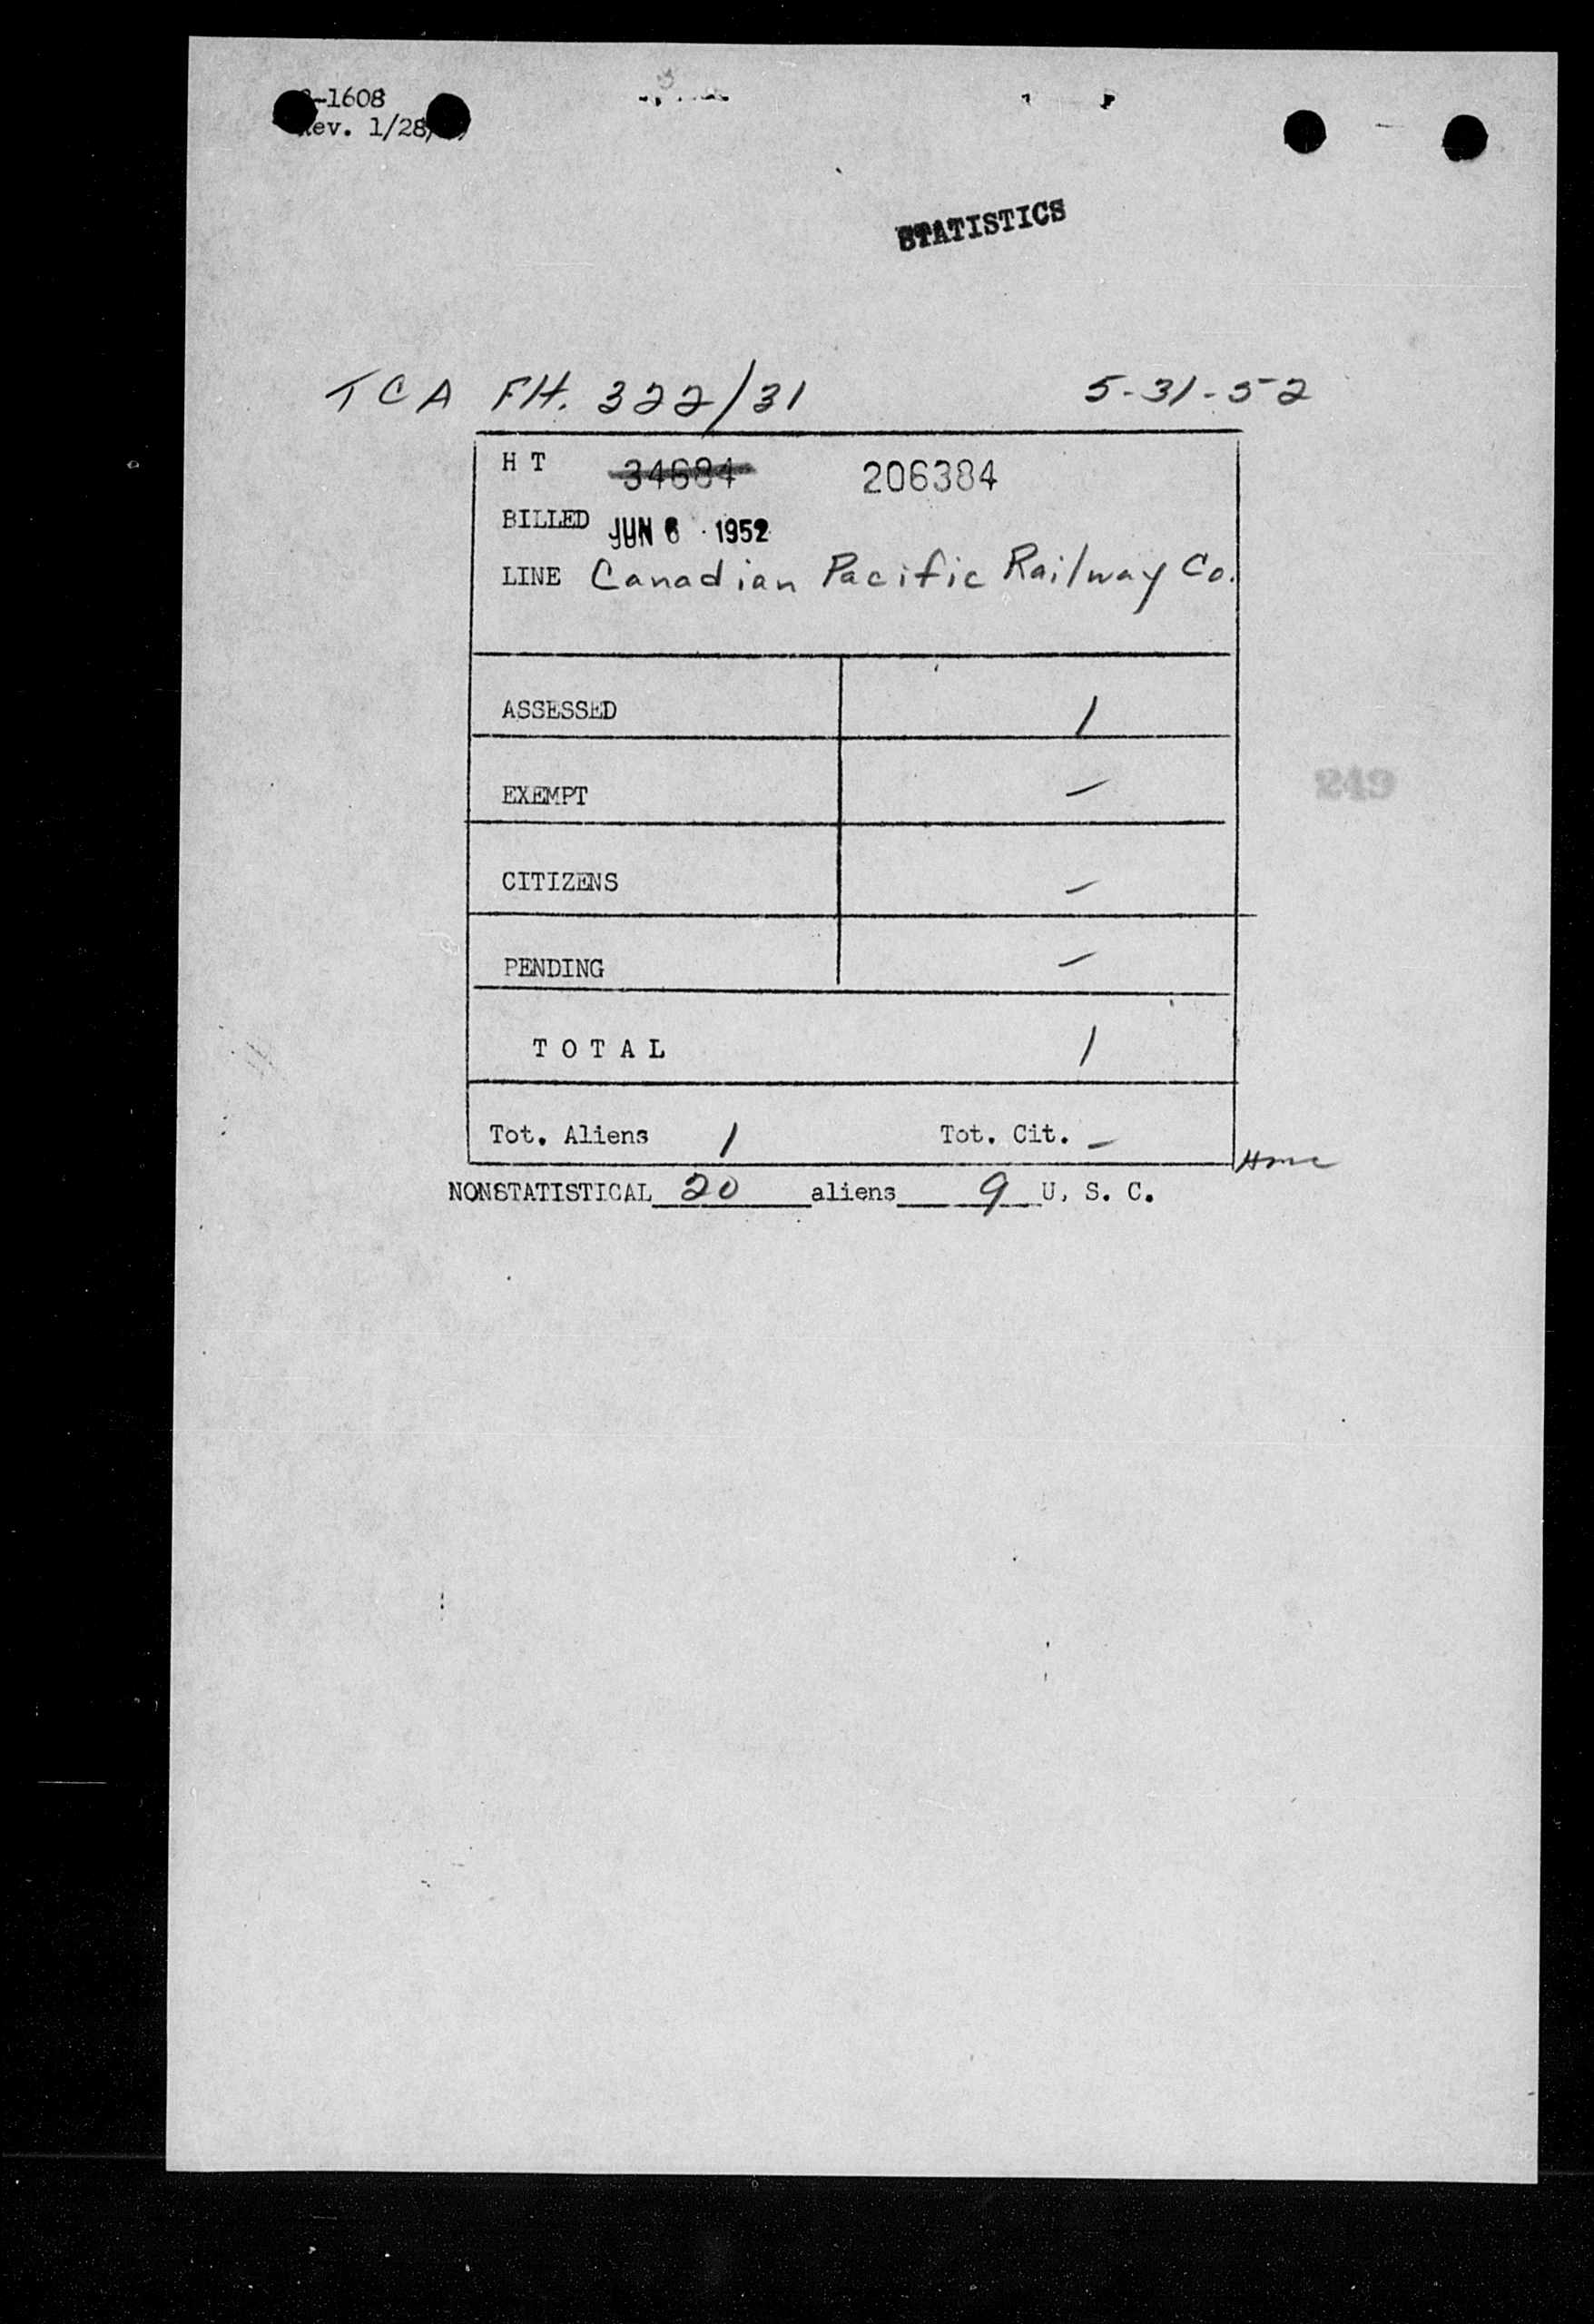 -1608
Rev. 1/28/
STATISTICS
TCA FH. 322/31 5-31-52
H T 34684 206384
BILLED JUN 6 1952
LINE Canadian Pacific Railway Co.
ASSESSED 1
EXEMPT -
CITIZENS -
249
PENDING -
T O T A L 1
Tot. Aliens 1 Tot. Cit. -
NONSTATISTICAL 20 aliens 9 U. S. C.